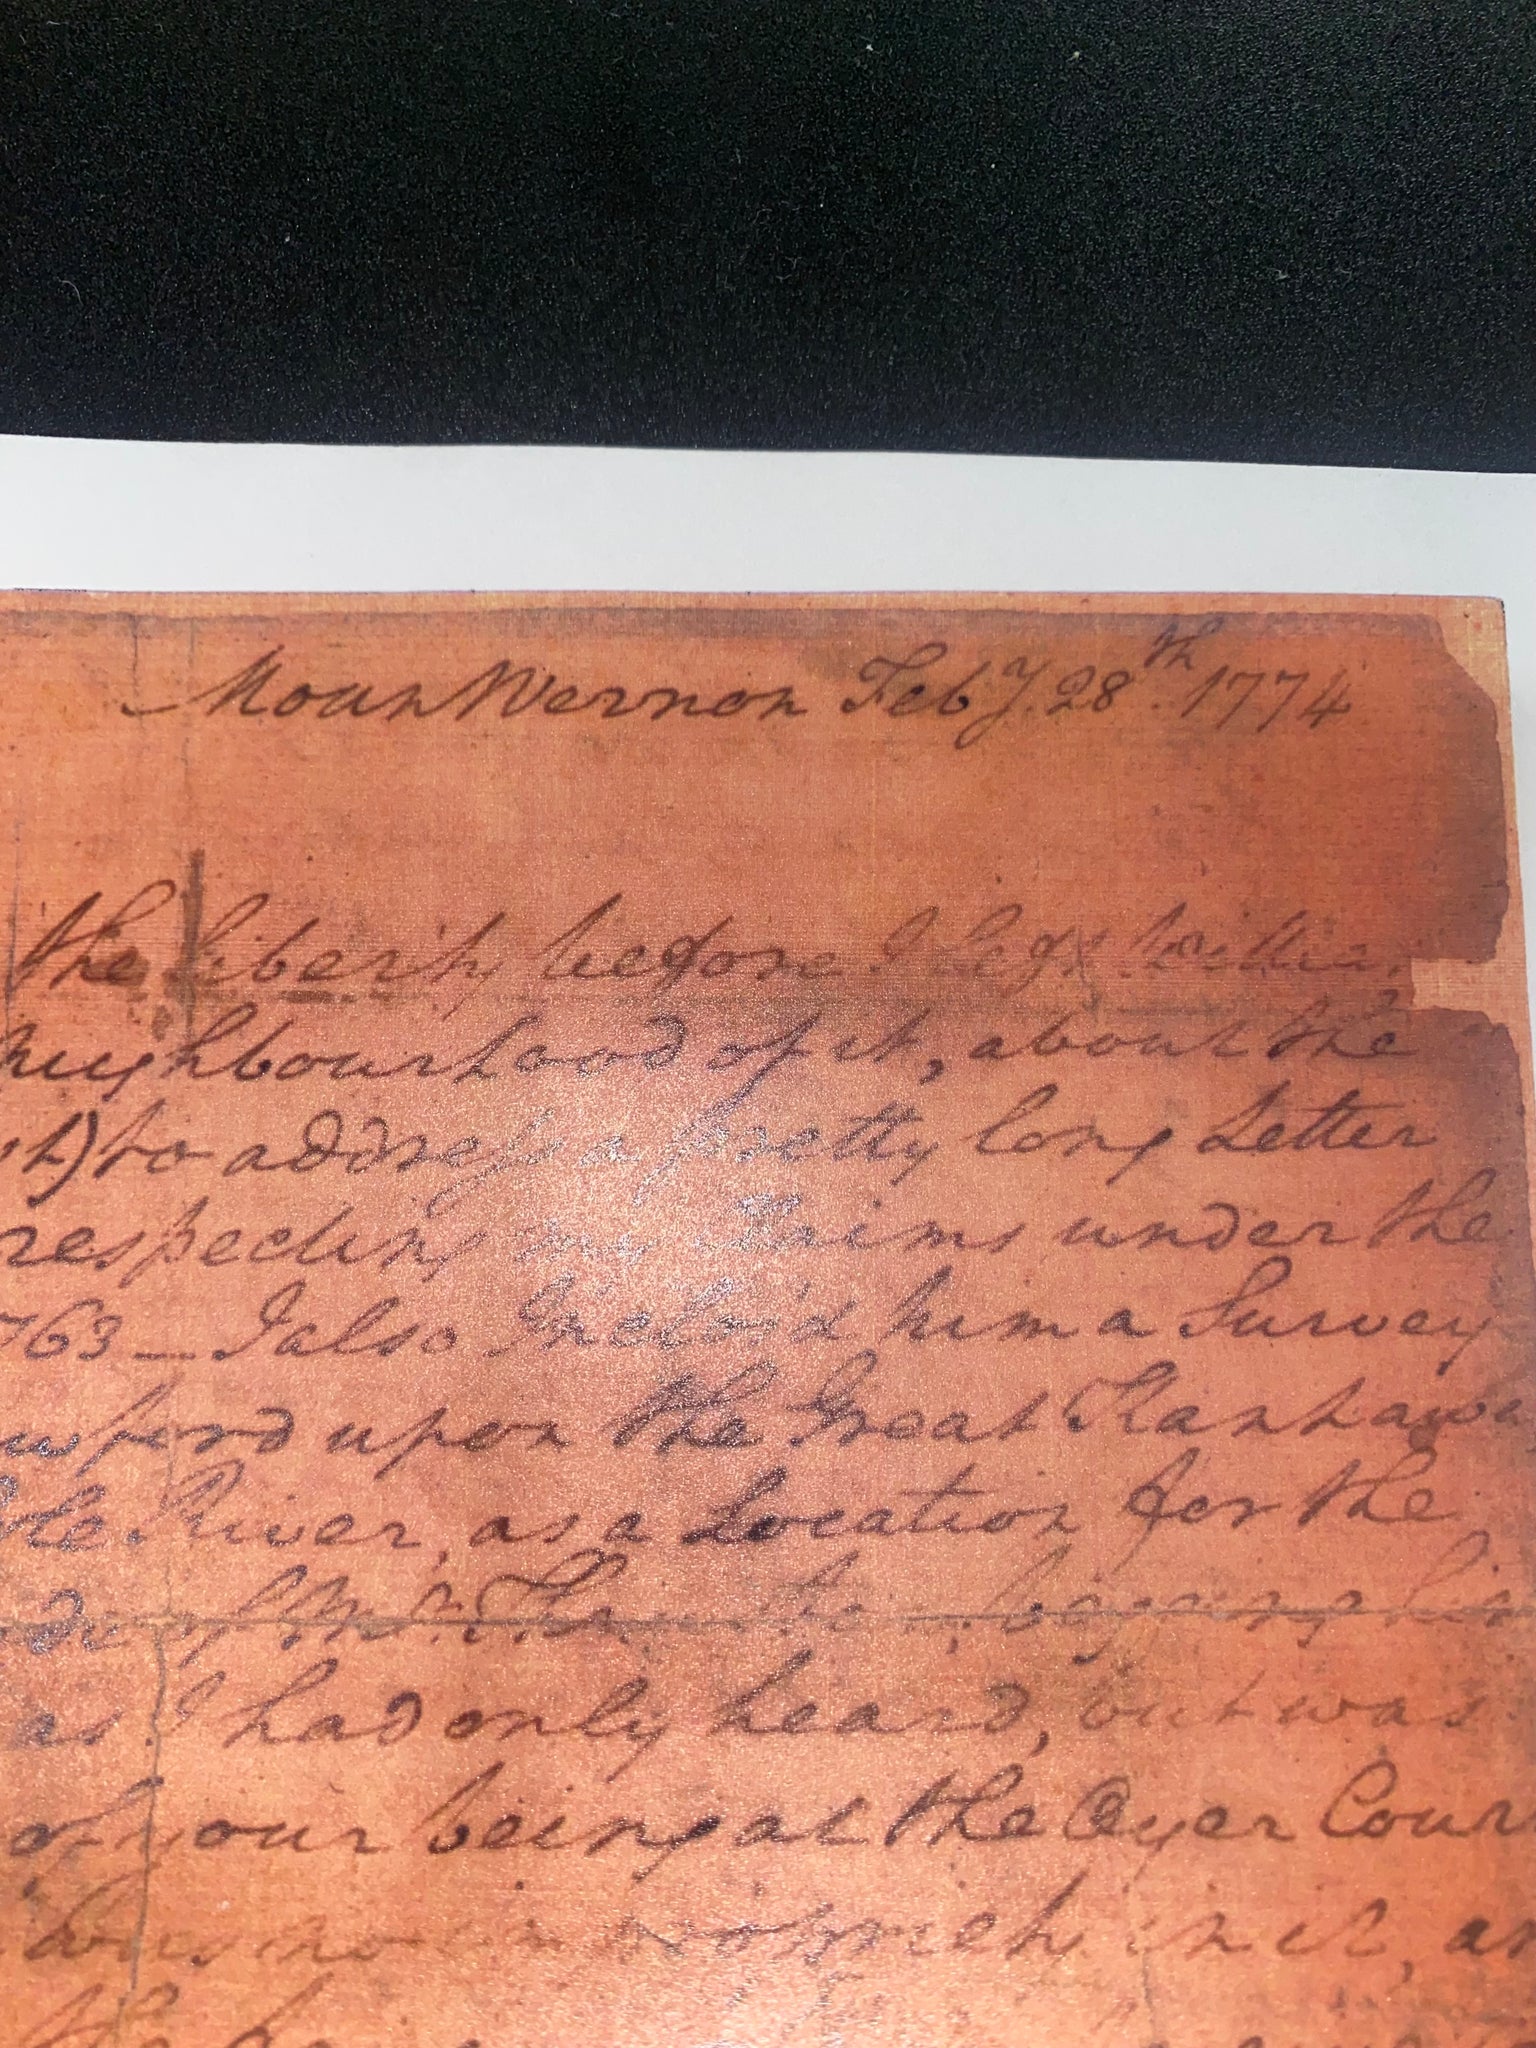 Mount Vernon Feby. 28th. 1774
the liberty before I left William
neighbourhood of it, about the
to address a pretty long Letter
respecting my Claims under the
763 — I also Inclos'd him a Survey
wford upon the Great Kanhawa
River, as a Location for the
begging
as I had only heard, but was
of your being at the Oyer Court
in it,